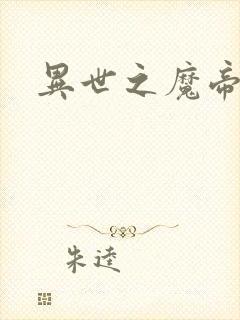 異世之魔帝
朱逵